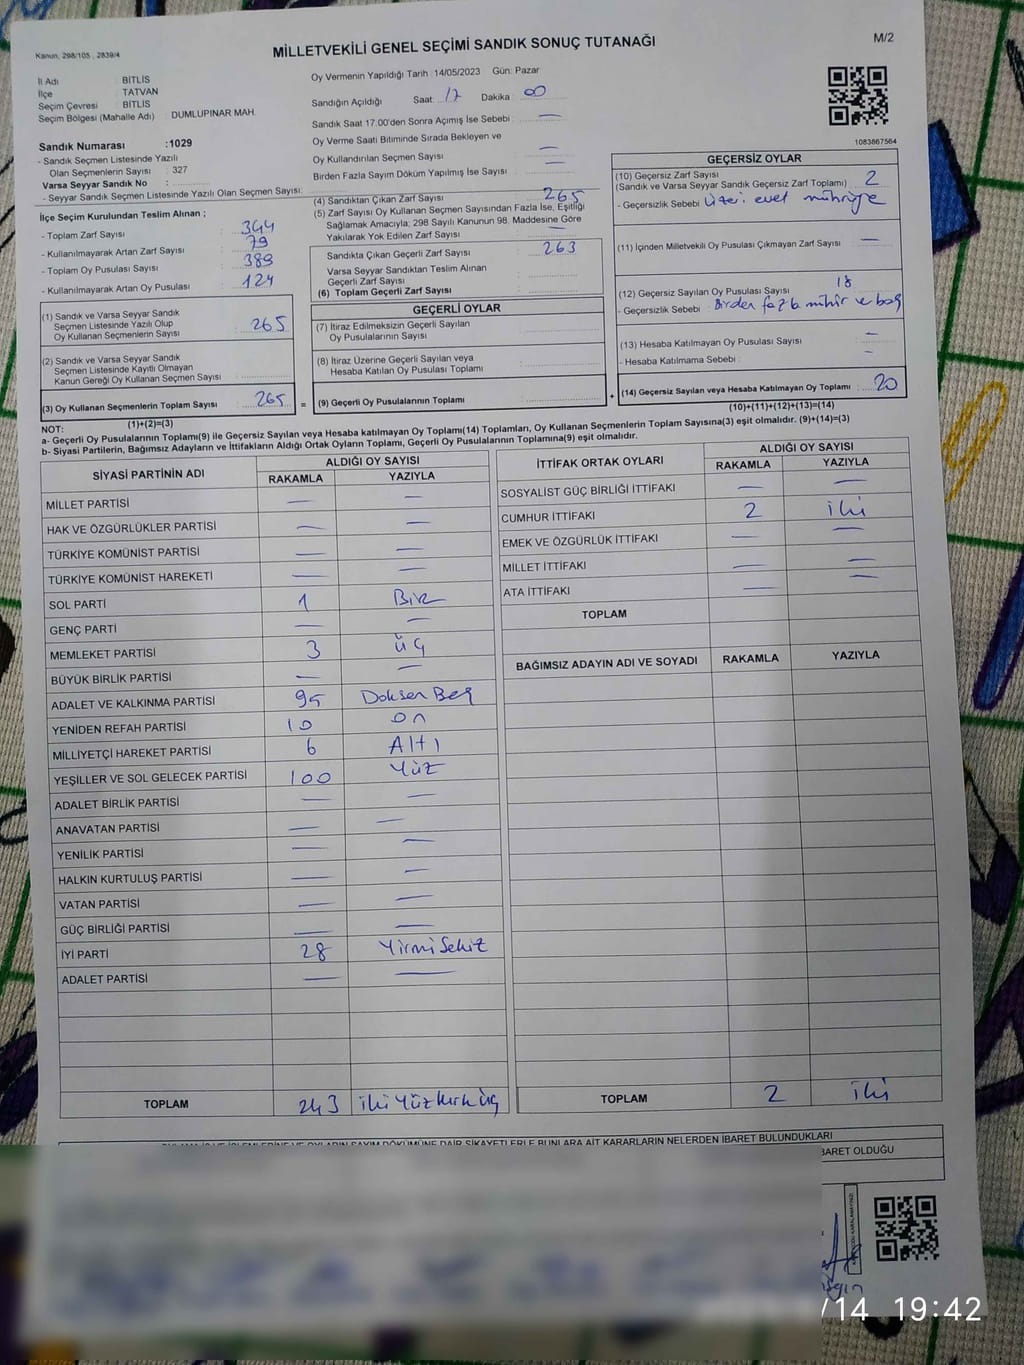 Kanun, 298/105 , 2839/4
MİLLETVEKİLİ GENEL SEÇİMİ SANDIK SONUÇ TUTANAĞI
M/2
İl Adı : BİTLİS
İlçe : TATVAN
Seçim Çevresi : BİTLİS
Seçim Bölgesi (Mahalle Adı) : DUMLUPINAR MAH.
Sandık Numarası :1029
- Sandık Seçmen Listesinde Yazılı
Olan Seçmenlerin Sayısı : 327
Varsa Seyyar Sandık No :
- Seyyar Sandık Seçmen Listesinde Yazılı Olan Seçmen Sayısı:
Oy Vermenin Yapıldığı Tarih :14/05/2023 Gün: Pazar
Sandığın Açıldığı Saat: 17 Dakika : 00
Sandık Saat 17:00'den Sonra Açımış İse Sebebi : —
Oy Verme Saati Bitiminde Sırada Bekleyen ve
Oy Kullandırılan Seçmen Sayısı : —
Birden Fazla Sayım Döküm Yapılmış İse Sayısı : —
1083867564
İlçe Seçim Kurulundan Teslim Alınan ;
- Toplam Zarf Sayısı : 344
- Kullanılmayarak Artan Zarf Sayısı : 79
- Toplam Oy Pusulası Sayısı : 389
- Kullanılmayarak Artan Oy Pusulası : 124
(1) Sandık ve Varsa Seyyar Sandık
Seçmen Listesinde Yazılı Olup
Oy Kullanan Seçmenlerin Sayısı : 265
(2) Sandık ve Varsa Seyyar Sandık
Seçmen Listesinde Kayıtlı Olmayan
Kanun Gereği Oy Kullanan Seçmen Sayısı :
(3) Oy Kullanan Seçmenlerin Toplam Sayısı : 265 =
(1)+(2)=(3)
(4) Sandıktan Çıkan Zarf Sayısı : 265
(5) Zarf Sayısı Oy Kullanan Seçmen Sayısından Fazla İse, Eşitliği
Sağlamak Amacıyla; 298 Sayılı Kanunun 98. Maddesine Göre
Yakılarak Yok Edilen Zarf Sayısı : —
Sandıkta Çıkan Geçerli Zarf Sayısı : 263
Varsa Seyyar Sandıktan Teslim Alınan
Geçerli Zarf Sayısı :
(6) Toplam Geçerli Zarf Sayısı :
GEÇERLİ OYLAR
(7) İtiraz Edilmeksizin Geçerli Sayılan
Oy Pusulalarının Sayısı :
(8) İtiraz Üzerine Geçerli Sayılan veya
Hesaba Katılan Oy Pusulası Toplamı :
(9) Geçerli Oy Pusulalarının Toplamı : +
GEÇERSİZ OYLAR
(10) Geçersiz Zarf Sayısı
(Sandık ve Varsa Seyyar Sandık Geçersiz Zarf Toplamı) : 2
- Geçersizlik Sebebi : Üzeri evet
(11) İçinden Milletvekili Oy Pusulası Çıkmayan Zarf Sayısı : —
(12) Geçersiz Sayılan Oy Pusulası Sayısı : 18
- Geçersizlik Sebebi : Birden fazla mühür ve boş
(13) Hesaba Katılmayan Oy Pusulası Sayısı : —
- Hesaba Katılmama Sebebi : —
(14) Geçersiz Sayılan veya Hesaba Katılmayan Oy Toplamı : 20
(10)+(11)+(12)+(13)=(14)
NOT:
a- Geçerli Oy Pusulalarının Toplamı(9) ile Geçersiz Sayılan veya Hesaba katılmayan Oy Toplamı(14) Toplamları, Oy Kullanan Seçmenlerin Toplam Sayısına(3) eşit olmalıdır. (9)+(14)=(3)
b- Siyasi Partilerin, Bağımsız Adayların ve İttifakların Aldığı Ortak Oyların Toplamı, Geçerli Oy Pusulalarının Toplamına(9) eşit olmalıdır.
SİYASİ PARTİNİN ADI ALDIĞI OY SAYISI
RAKAMLA YAZIYLA
MİLLET PARTİSİ — —
HAK VE ÖZGÜRLÜKLER PARTİSİ — —
TÜRKİYE KOMÜNİST PARTİSİ — —
TÜRKİYE KOMÜNİST HAREKETİ — —
SOL PARTİ 1 Bir
GENÇ PARTİ — —
MEMLEKET PARTİSİ 3 üç
BÜYÜK BİRLİK PARTİSİ — —
ADALET VE KALKINMA PARTİSİ 95 Doksan Beş
YENİDEN REFAH PARTİSİ 10 on
MİLLİYETÇİ HAREKET PARTİSİ 6 Altı
YEŞİLLER VE SOL GELECEK PARTİSİ 100 Yüz
ADALET BİRLİK PARTİSİ — —
ANAVATAN PARTİSİ — —
YENİLİK PARTİSİ — —
HALKIN KURTULUŞ PARTİSİ — —
VATAN PARTİSİ — —
GÜÇ BİRLİĞİ PARTİSİ — —
İYİ PARTİ 28 Yirmi Sekiz
ADALET PARTİSİ — —
TOPLAM 243 iki Yüz kırk üç
İTTİFAK ORTAK OYLARI ALDIĞI OY SAYISI
RAKAMLA YAZIYLA
SOSYALİST GÜÇ BİRLİĞİ İTTİFAKI — —
CUMHUR İTTİFAKI 2 iki
EMEK VE ÖZGÜRLÜK İTTİFAKI — —
MİLLET İTTİFAKI — —
ATA İTTİFAKI — —
TOPLAM
BAĞIMSIZ ADAYIN ADI VE SOYADI RAKAMLA YAZIYLA
TOPLAM 2 iki
DÖKÜMÜNE DAİR ŞİKAYETLERLE BUNLARA AİT KARARLARIN NELERDEN İBARET BULUNDUKLARI
BARET OLDUĞU
/14 19:42